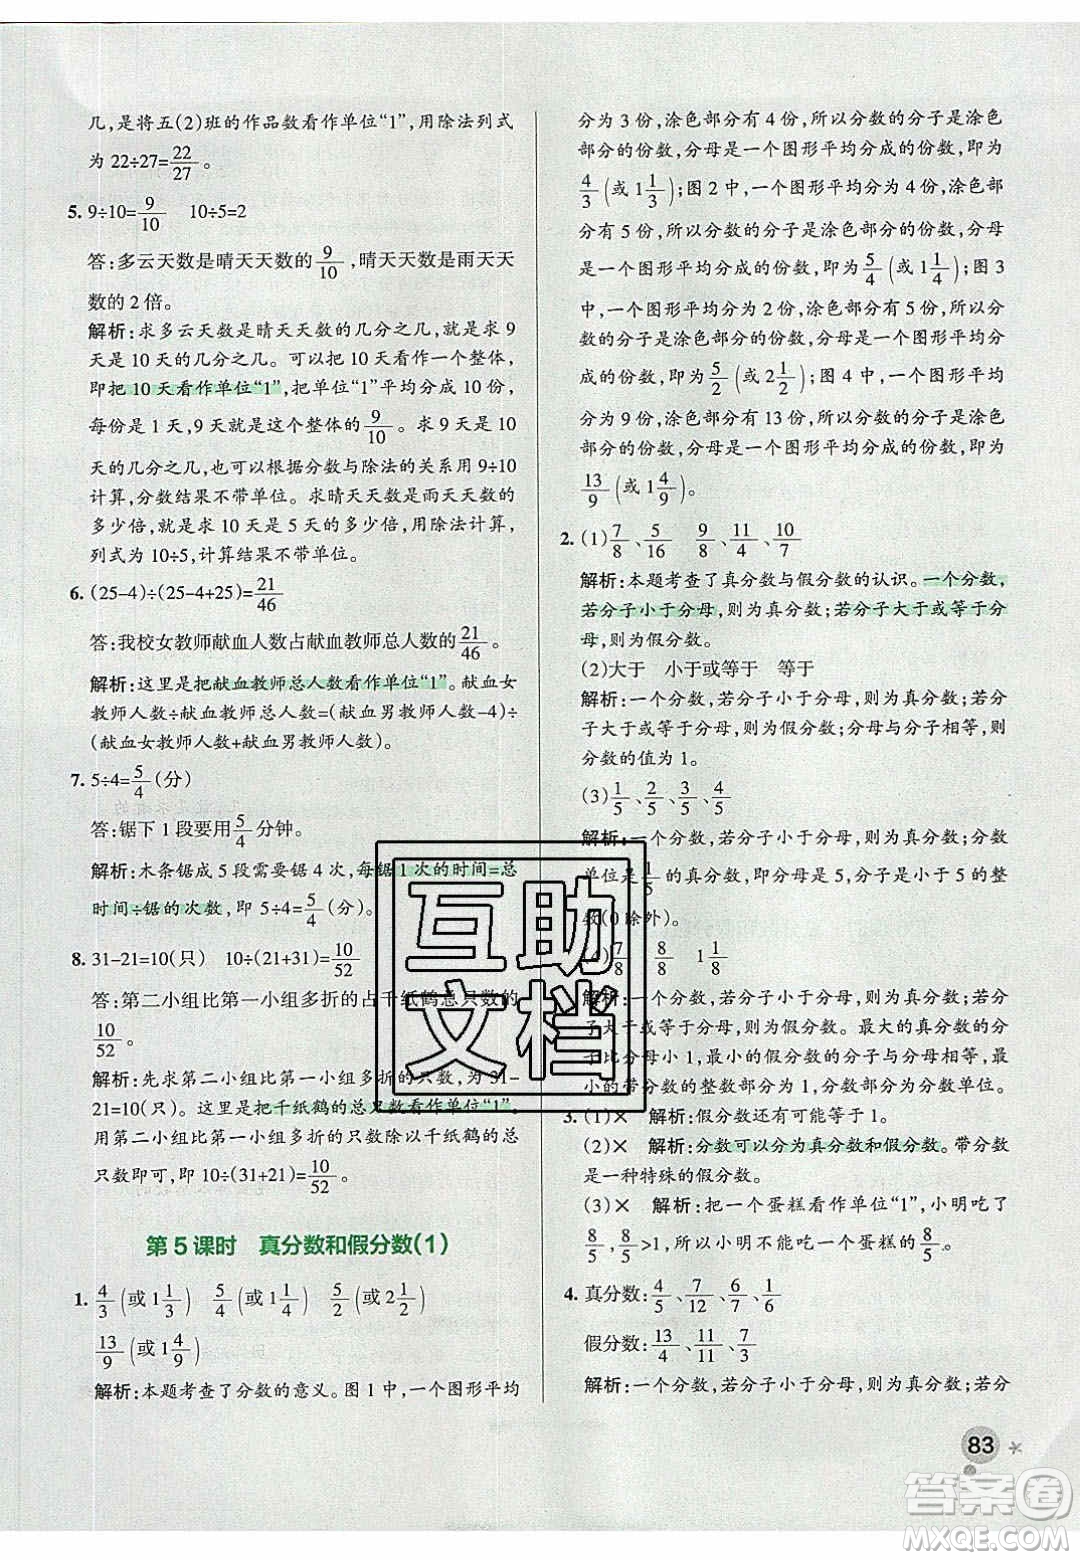 几,是将五(2)班的作品数看作单位“1”,用除法列式
为 22÷27=22/27。
5. 9÷10=9/10 10÷5=2
答:多云天数是晴天天数的9/10,晴天天数是雨天天
数的 2 倍。
解析:求多云天数是晴天天数的几分之几,就是求 9
天是 10 天的几分之几。可以把 10 天看作一个整体,
即把 10 天看作单位“1”,把单位“1”平均分成 10 份,
每份是 1 天,9 天就是这个整体的9/10。求 9 天是 10
天的几分之几,可以根据分数与除法的关系用 9÷10
计算,分数结果不带单位。求晴天天数是雨天天数的
多少倍,就是求 10 天是 5 天的多少倍,用除法计算,
列式为 10÷5,计算结果不带单位。
6. (25-4)÷(25-4+25)=21/46
答:我校女教师献血人数占献血教师总人数的21/46。
解析:这里是把献血教师总人数看作单位“1”。献血女
教师人数÷献血教师总人数=(献血男教师人数-4)÷
(献血女教师人数+献血男教师人数)。
7. 5÷4=5/4(分)
答:锯下 1 段要用5/4分钟。
解析:木条锯成 5 段需要锯 4 次,每锯 1 次的时间=总
时间÷锯的次数,即 5÷4=5/4(分)。
8. 31-21=10(只) 10÷(21+31)=10/52
答:第二小组比第一小组多折的占千纸鹤总只数的
10/52。
解析:先求第二小组比第一小组多折的只数,为 31-
21=10(只)。这里是把千纸鹤的总只数看作单位“1”。
用第二小组比第一小组多折的只数除以千纸鹤的总
只数即可,即 10÷(21+31)=10/52。
第 5 课时 真分数和假分数(1)
1. 4/3(或 1 1/3) 5/4(或 1 1/4) 5/2(或 2 1/2)
13/9(或 1 4/9)
解析:本题考查了分数的意义。图 1 中,一个图形平均
分为 3 份,涂色部分有 4 份,所以分数的分子是涂色
部分的份数,分母是一个图形平均分成的份数,即为
4/3(或 1 1/3);图 2 中,一个图形平均分为 4 份,涂色部
分有 5 份,所以分数的分子是涂色部分的份数,分母
是一个图形平均分成的份数,即为5/4(或 1 1/4);图 3
中,一个图形平均分为 2 份,涂色部分有 5 份,所以分
数的分子是涂色部分的份数,分母是一个图形平均分
成的份数,即为5/2(或 2 1/2);图 4 中,一个图形平均
分为 9 份,涂色部分有 13 份,所以分数的分子是涂色
部分的份数,分母是一个图形平均分成的份数,即为
13/9(或 1 4/9)。
2. (1)7/8、5/16 9/8、11/4、10/7
解析:本题考查了真分数与假分数的认识。一个分数,
若分子小于分母,则为真分数;若分子大于或等于分
母,则为假分数。
(2)大于 小于或等于 等于
解析:一个分数,若分子小于分母,则为真分数;若分
子大于或等于分母,则为假分数;分母与分子相等,则
分数的值为 1。
(3)1/5、2/5、3/5、4/5
解析:一个分数,若分子小于分母,则为真分数;分数
单位是1/5的真分数,即分母是 5,分子是小于 5 的整
数(0 除外)。
(4)7/8 8/8 1 1/8
解析:一个分数,若分子小于分母,则为真分数;若分
子大于或等于分母,则为假分数。最大的真分数的分
子比分母小 1,最小的假分数的分子与分母相等,最
小的带分数的整数部分为 1,分数部分为分数单位。
3. (1)× 解析:假分数还有可能等于 1。
(2)× 解析:分数可以分为真分数和假分数。带分
数是一种特殊的假分数。
(3)× 解析:把一个蛋糕看作单位“1”,小明吃了
8/5,8/5>1,所以小明不可能吃一个蛋糕的8/5。
4. 真分数:4/5、7/12、6/7、1/6
假分数:13/4、11/11、7/3
解析:一个分数,若分子小于分母,则为真分数;若分
83
互助
文档
答案圈
MXQE.COM